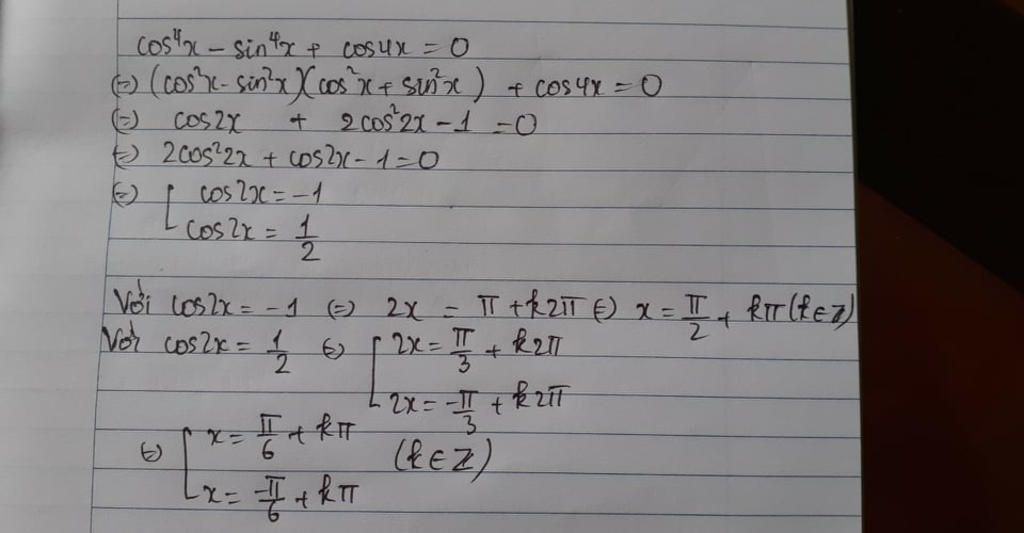 cos⁴x - sin⁴x + cos4x = 0
(=) (cos²x - sin²x)(cos²x + sin²x) + cos4x = 0
(=) cos2x + 2cos²2x - 1 = 0
(=) 2cos²2x + cos2x - 1 = 0
(=) [ cos2x = -1
cos2x = 1/2
Với cos2x = -1 (=) 2x = π + k2π (=) x = π/2 + kπ (k ∈ Z)
Với cos2x = 1/2 (=) [ 2x = π/3 + k2π
2x = -π/3 + k2π
(=) [ x = π/6 + kπ (k ∈ Z)
x = -π/6 + kπ